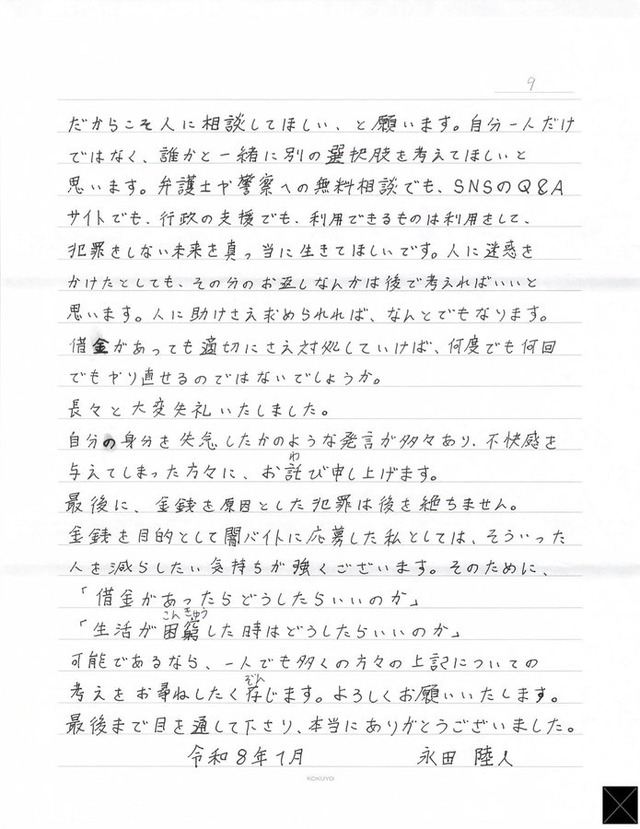 9
だからこそ人に相談してほしい、と願います。自分一人だけ
ではなく、誰かと一緒に別の選択肢を考えてほしいと
思います。弁護士や警察への無料相談でも、SNSのQ&A
サイトでも、行政の支援でも、利用できるものは利用をして、
犯罪をしない未来を真っ当に生きてほしいです。人に迷惑を
かけたとしても、その分のお返しなんかは後で考えればいいと
思います。人に助けさえ求められれば、なんとでもなります。
借金があっても適切にさえ対処していけば、何度でも何回
でもやり直せるのではないでしょうか。
長々と大変失礼いたしました。
自分の身分を失念したかのような発言が多々あり、不快感を
与えてしまった方々に、お詫び申し上げます。
わ
最後に、金銭を原因とした犯罪は後を絶ちません。
金銭を目的として闇バイトに応募した私としては、そういった
人を減らしたい気持ちが強くございます。そのために、
「借金があったらどうしたらいいのか」
こんきゅう
「生活が困窮した時はどうしたらいいのか」
可能であるなら、一人でも多くの方々の上記についての
ぞん
考えをお尋ねしたく存じます。よろしくお願いいたします。
最後まで目を通して下さり、本当にありがとうございました。
令和8年1月 永田 陸人
KOKUYO